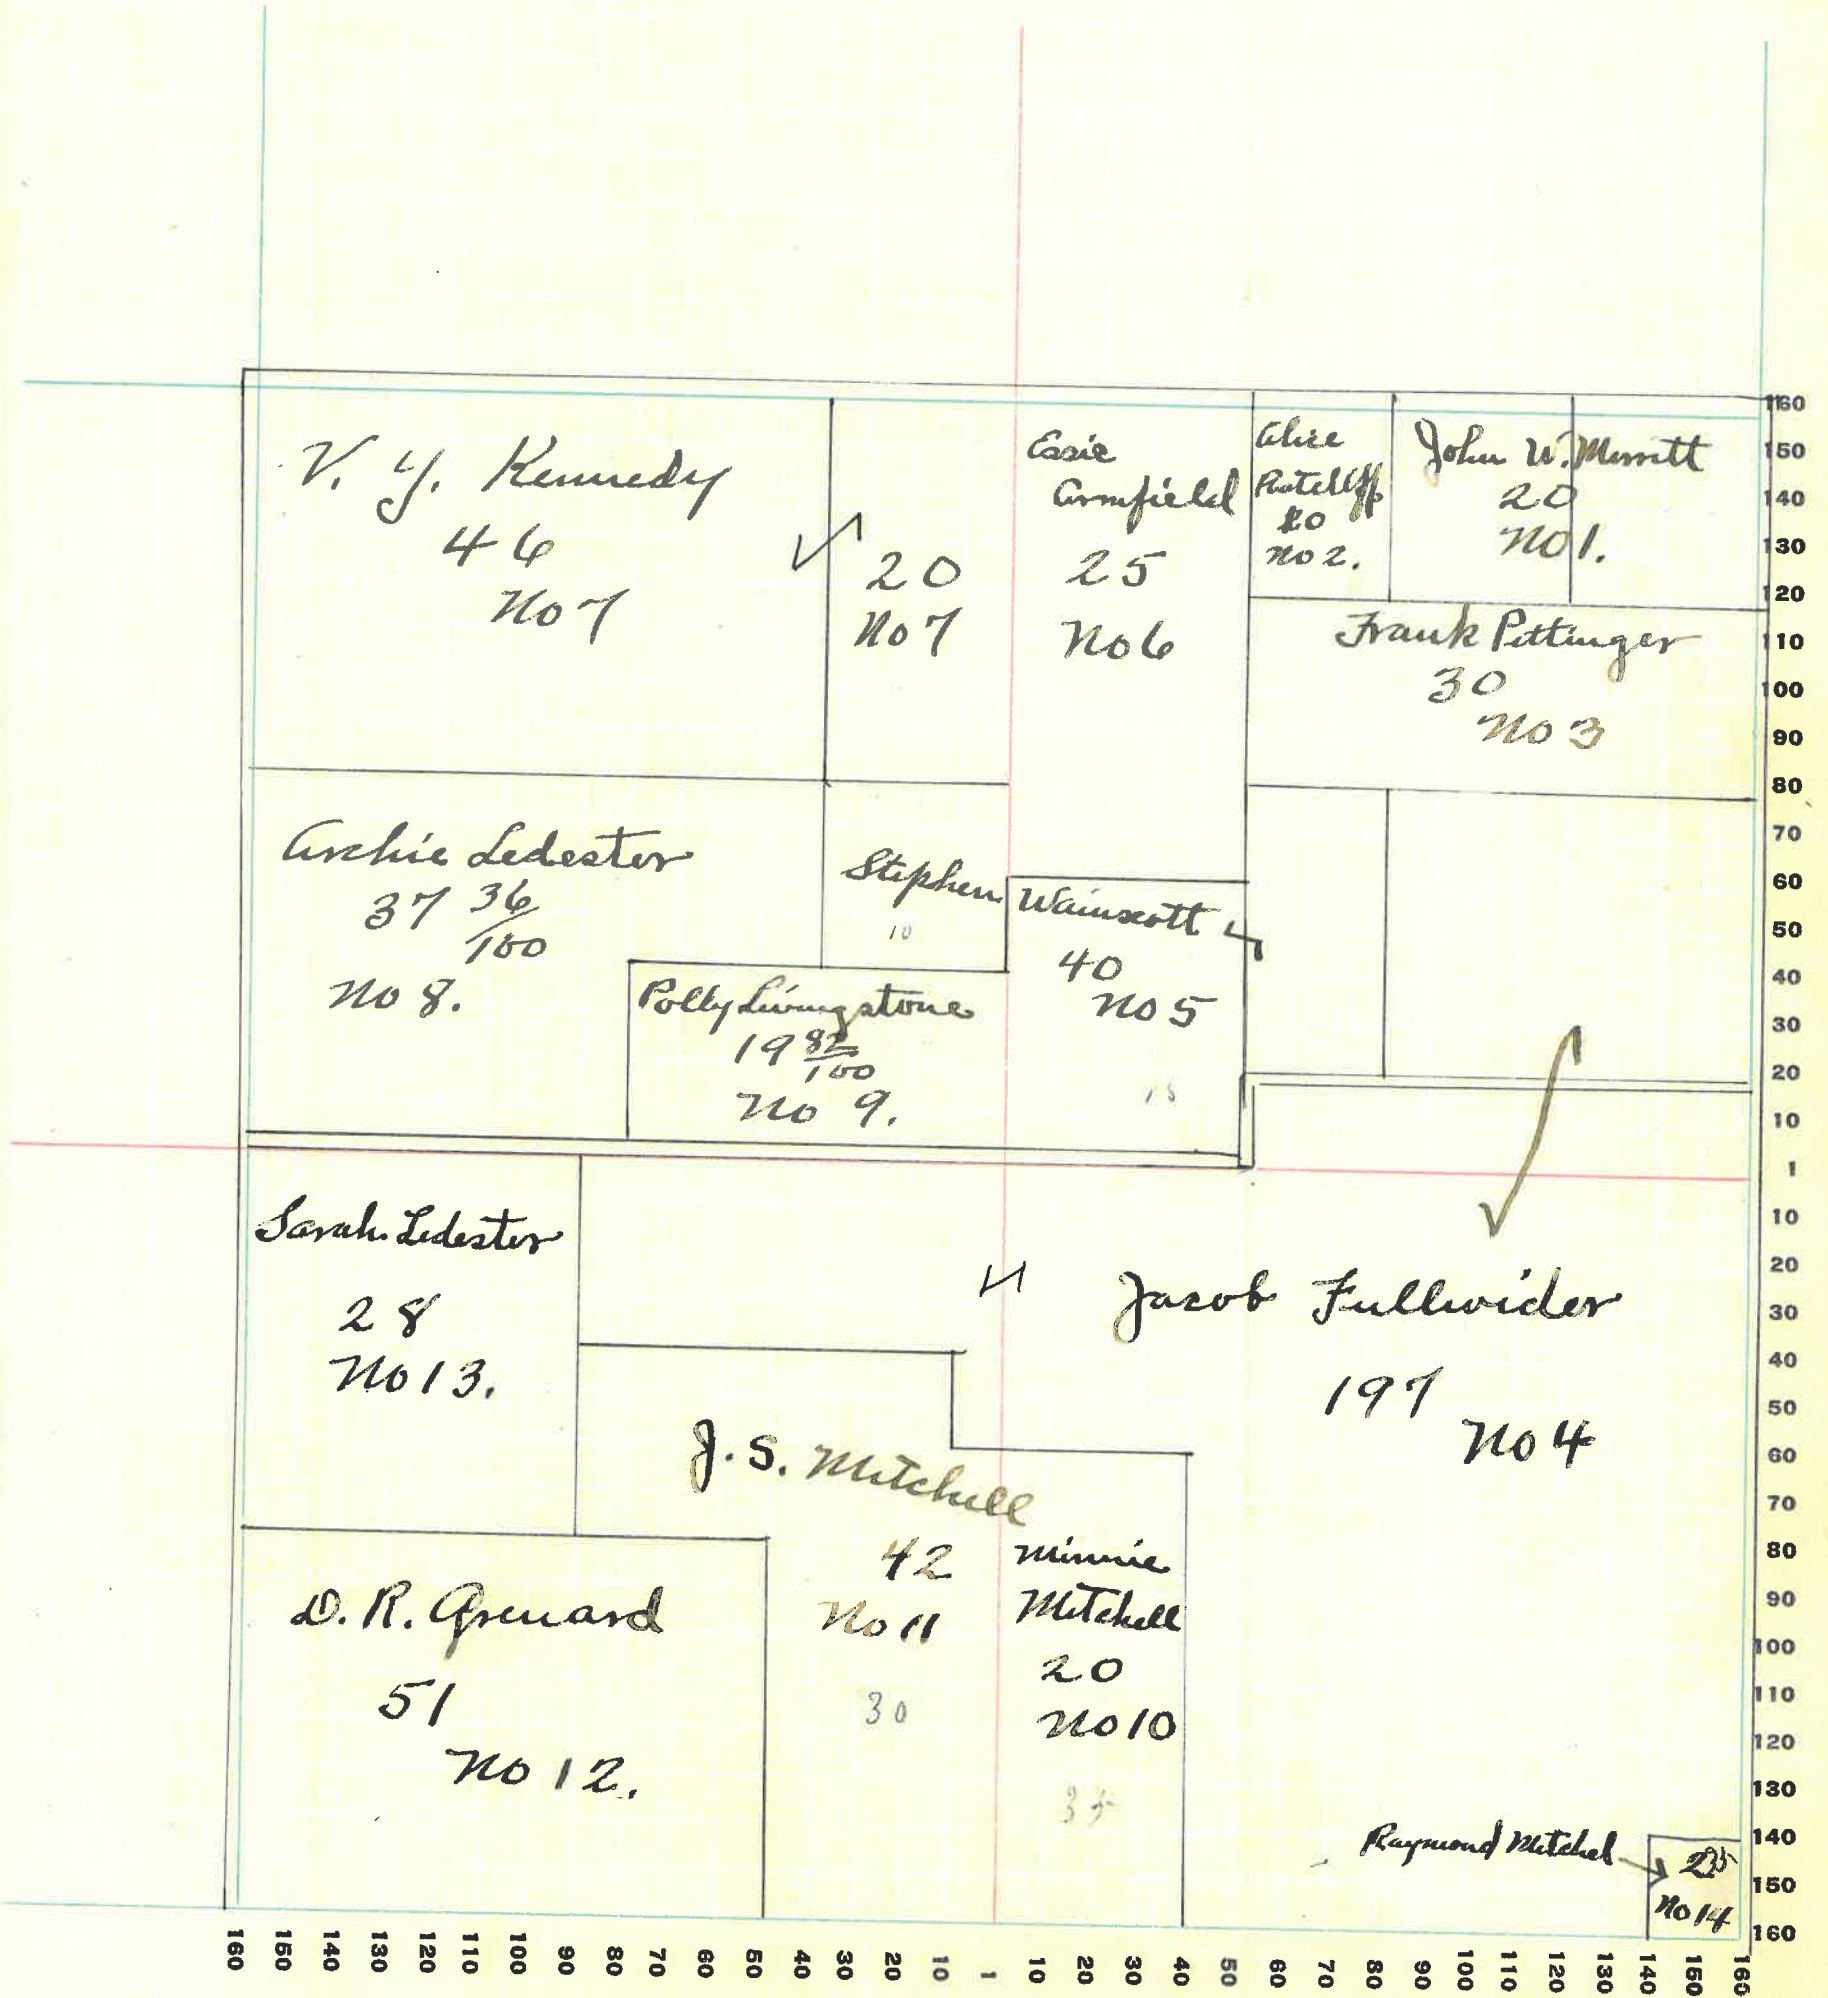 V. Y. Kennedy
46
No 7
20
No 7
Essie
Armfield
25
No 6
Alice
No 2.
John W. Merritt
20
No 1.
Frank Pittinger
30
No 3
Archie Ledester
37 36/100
No 8.
Stephen Wainscott
10
40
No 5
15
Polly Livingstone
19 82/100
No 9.
Sarah Ledester
28
No 13.
Jacob Fullwider
197
No 4
J. S. Mitchell
42
No 11
30
Minnie
Mitchell
20
No 10
D. R. Grenard
51
No 12.
Raymond Mitchel
No 14
160
150
140
130
120
110
100
90
80
70
60
50
40
30
20
10
1
10
20
30
40
50
60
70
80
90
100
110
120
130
140
150
160
160 150 140 130 120 110 100 90 80 70 60 50 40 30 20 10 1 10 20 30 40 50 60 70 80 90 100 110 120 130 140 150 160